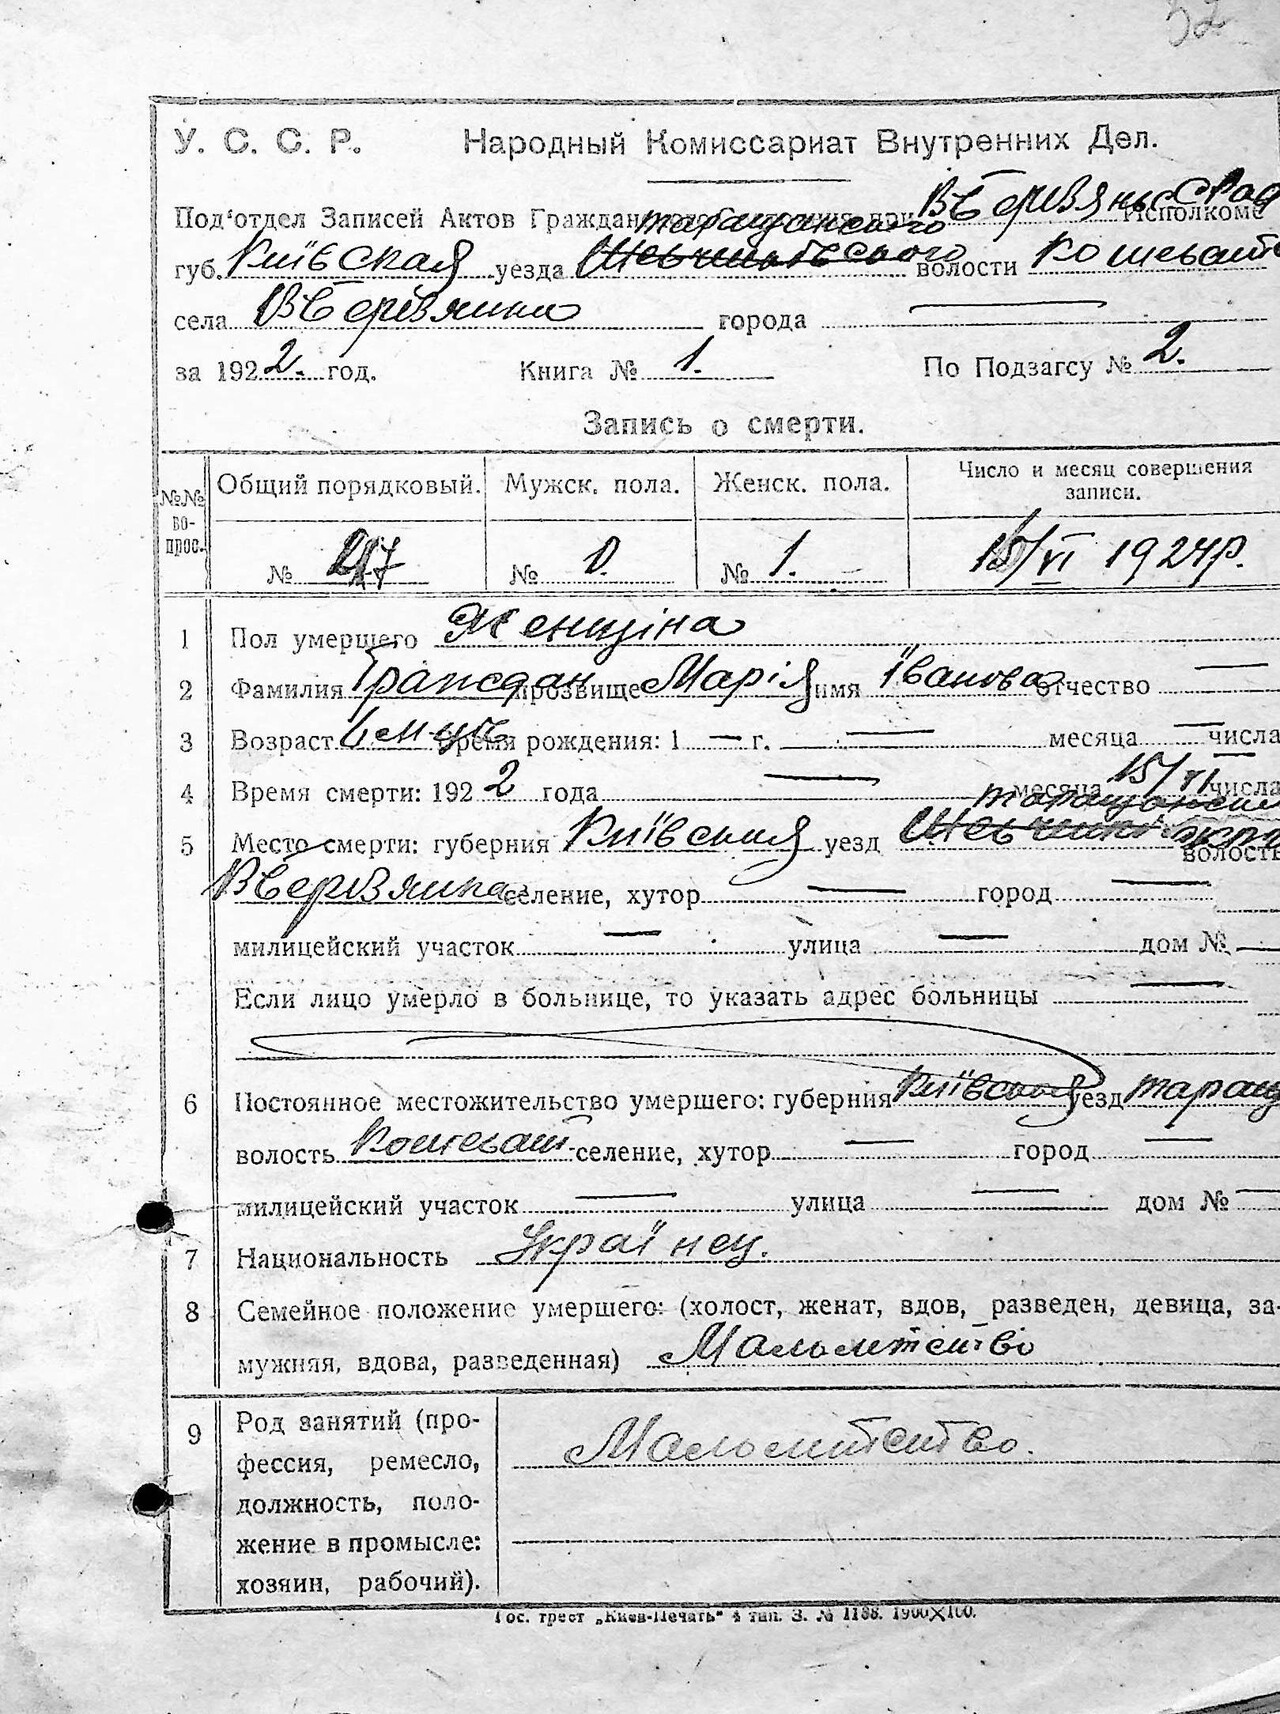 52
У. С. С. Р. Народный Комиссариат Внутренних Дел.
Под‘отдел Записей Актов Гражданского Состояния при Исполкоме
Таращанского
губ. Київская уезда Шевченковського волости Кошевайт
села города —
за 1922. год. Книга № 1. По Подзагсу № 2.
Запись о смерти.
№№ вопрос. Общий порядковый. Мужск. пола. Женск. пола. Число и месяц совершения записи.
№ № 0. № 1. 15/VI 1924р.
1 Пол умершего Женщіна
2 Фамилия Граждан прозвище Марія имя Іванова отчество —
3 Возраст время рождения: 1 — г. — месяца — числа
4 Время смерти: 1922 года — месяца 15/VI числа
Таращанский
5 Место смерти: губерния Київская уезд волость
селение, хутор — город —
милицейский участок — улица — дом № —
Если лицо умерло в больнице, то указать адрес больницы —
6 Постоянное местожительство умершего: губерния Київская уезд Таращ
волость Кошеват селение, хутор — город —
милицейский участок — улица — дом № —
7 Национальность Українец.
8 Семейное положение умершего: (холост, женат, вдов, разведен, девица, за-
мужняя, вдова, разведенная) Мальолтєтство
9 Род занятий (про-
фессия, ремесло,
должность, поло-
жение в промысле:
хозяин, рабочий).
Гос. трест „Киев-Печать“ 4 тип. З. № 1188. 1900×100.